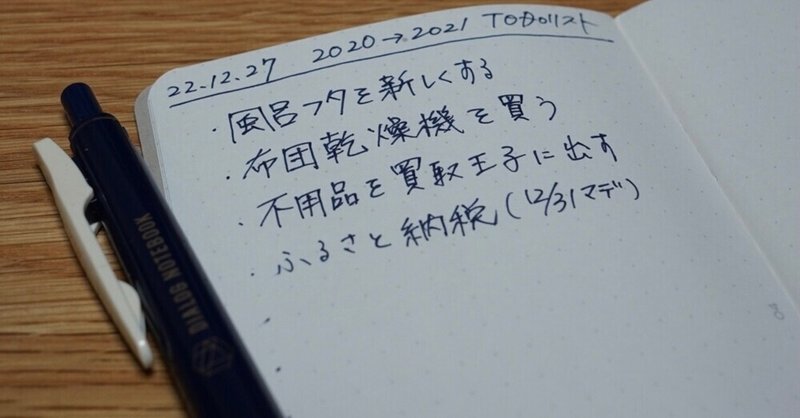 22.12.27 2020→2021 TODOリスト
・風呂フタを新しくする
・布団乾燥機を買う
・不用品を買取王子に出す
・ふるさと納税(12/31マデ)
DIALOG NOTEBOOK
8